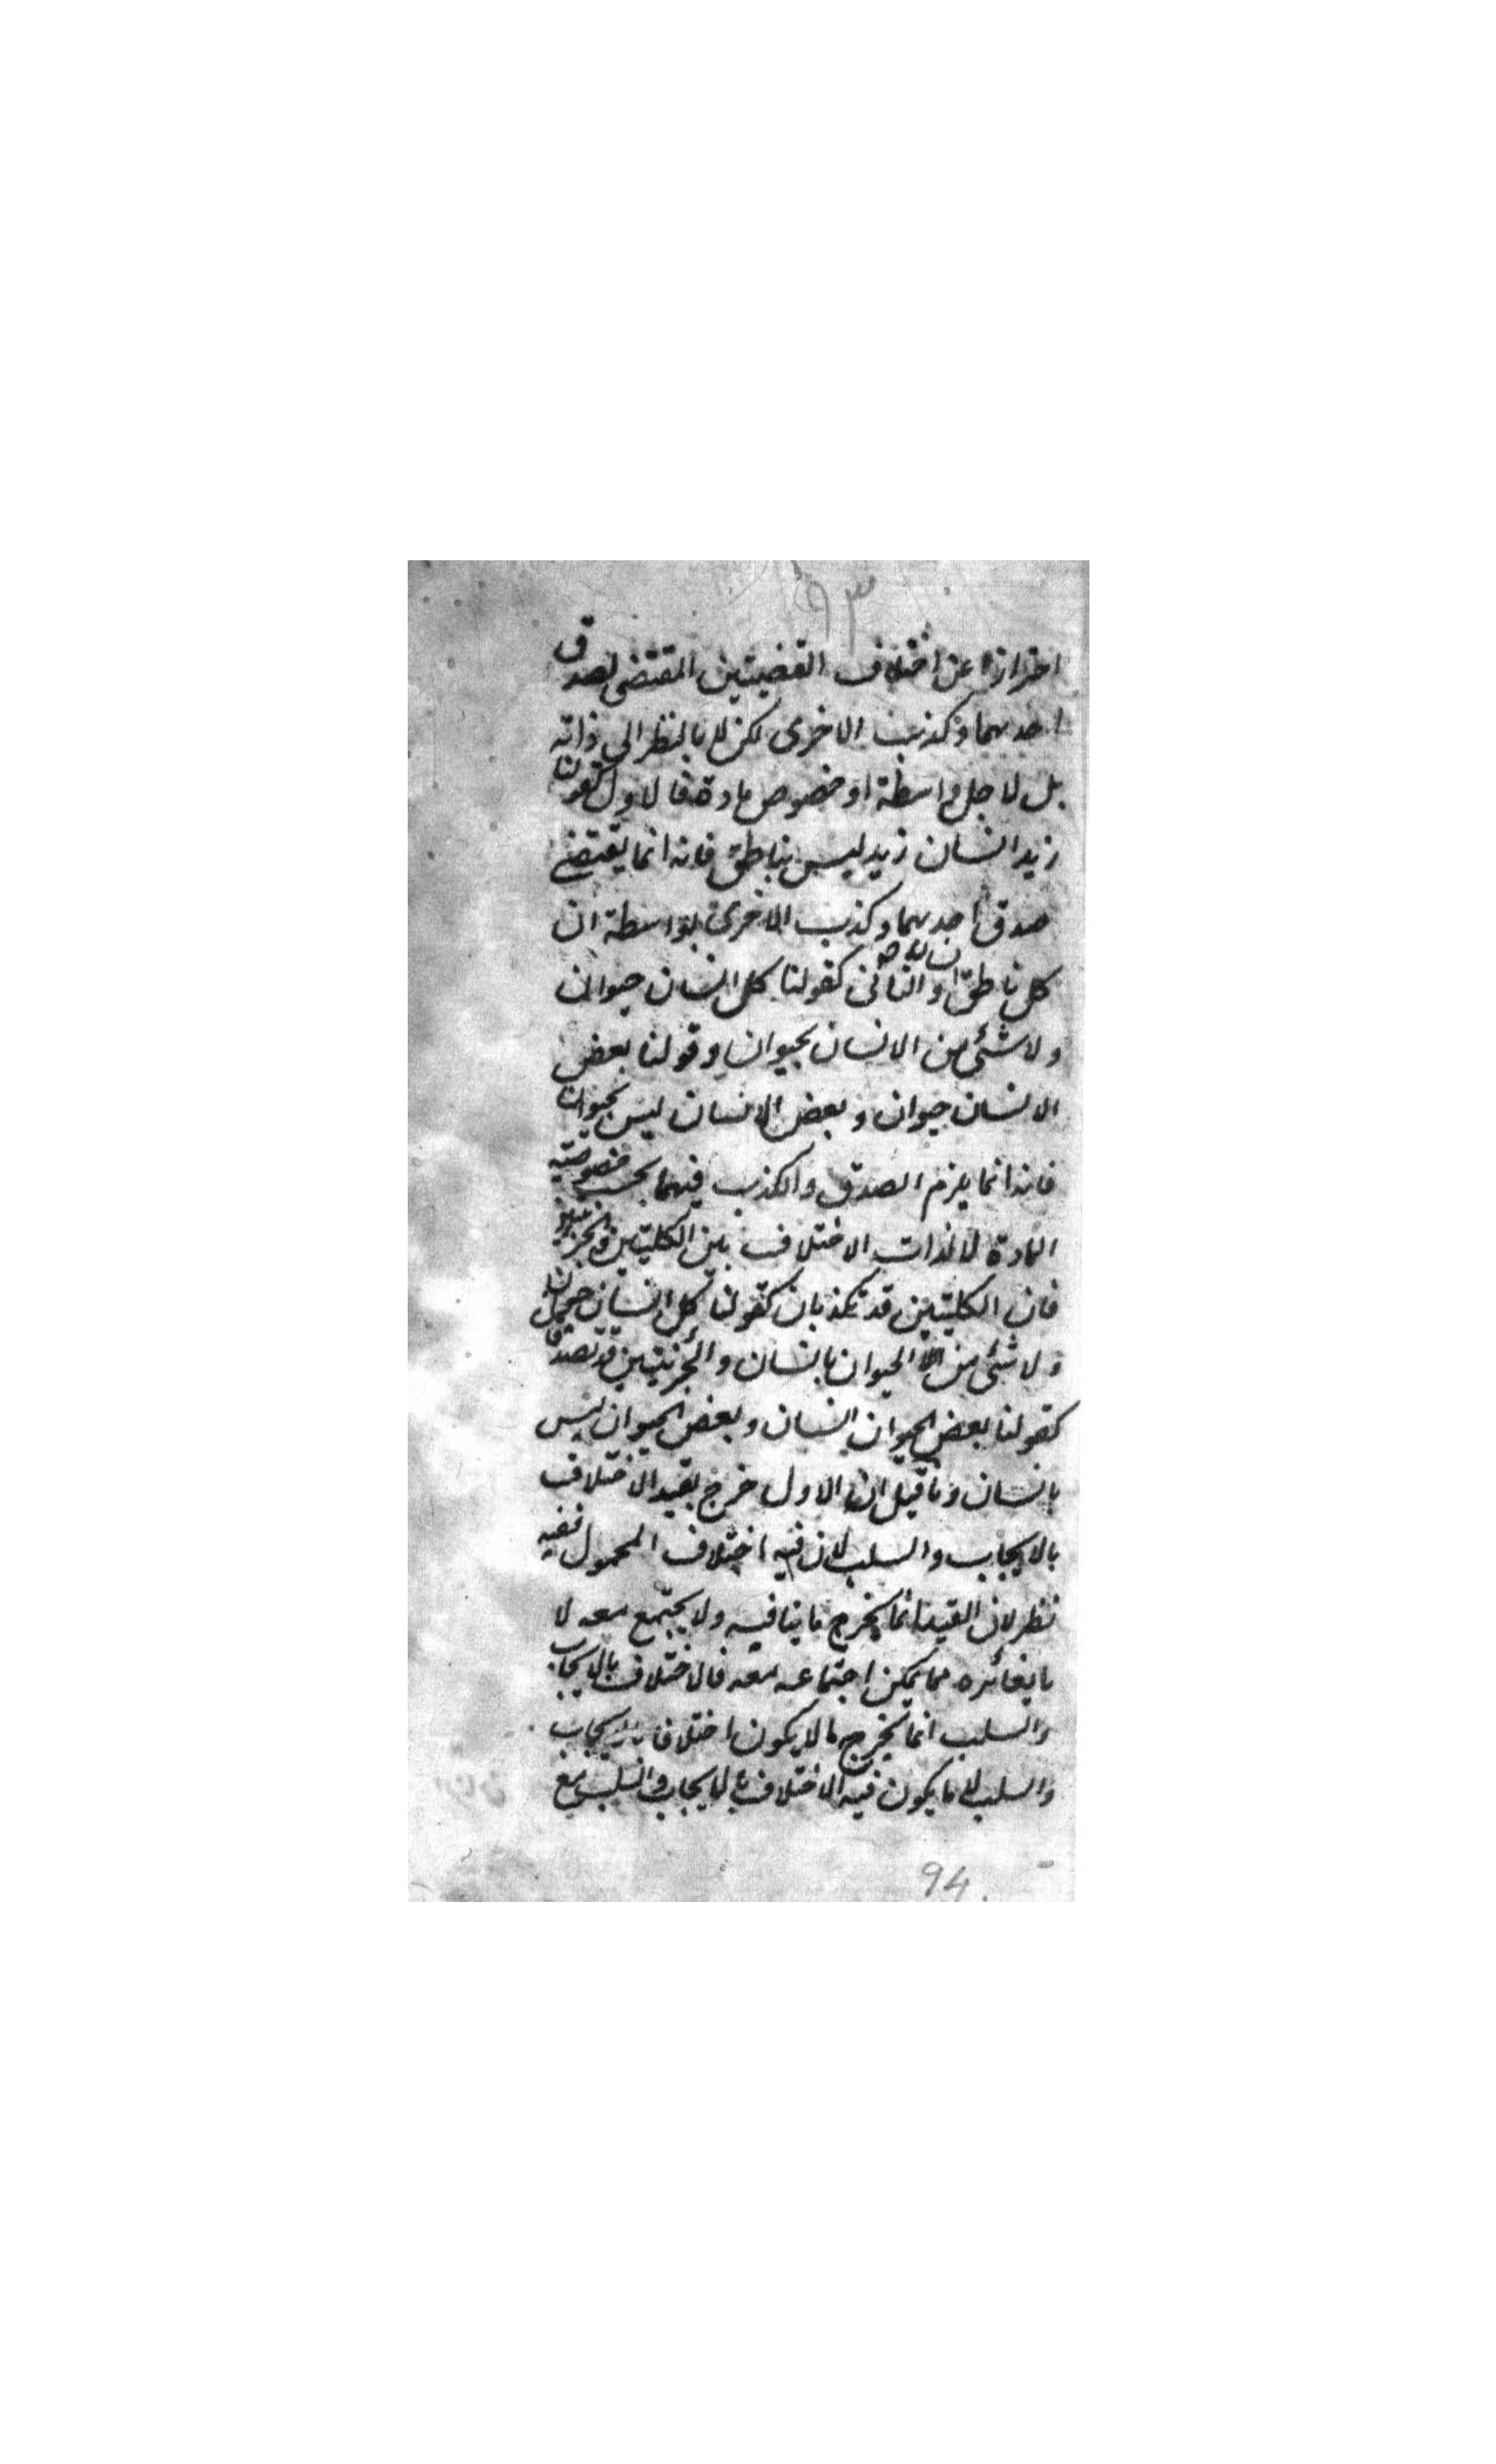 ٩٣
احترازا عن اختلاف القضيتين المقتضى لصدق
احديهما وكذب الاخرى لكن لا بالنظر الى ذاته
بل لاجل واسطة او خصوص مادة فالاول كقولنا
زيد انسان زيد ليس بناطق فانه انما يقتضى
صدق احديهما وكذب الاخرى بواسطة ان
كل ناطق انسان والثانى كقولنا كل انسان حيوان
ولا شئ من الانسان بحيوان وقولنا بعض
الانسان حيوان وبعض الانسان ليس بحيوان
فانه انما يلزم الصدق والكذب فيهما بحسب خصوصية
المادة لا لذات الاختلاف بين الكليتين والجزئيتين
فان الكليتين قد تكذبان كقولنا كل انسان
ولا شئ من الحيوان بانسان والجزئيتين قد تصدقان
كقولنا بعض الحيوان انسان وبعض الحيوان ليس
بانسان وما قيل ان الاول خرج بقيد الاختلاف
بالايجاب والسلب لان فيه اختلاف المحمول ففيه
نظر لان القيد انما يخرج ما ينافيه ولا يجتمع معه لا
ما يغائره مما يمكن اجتماعه معه فالاختلاف بالايجاب
والسلب انما يخرج ما لا يكون اختلافا بالايجاب
والسلب لا ما يكون فيه الاختلاف بالايجاب والسلب مع
94